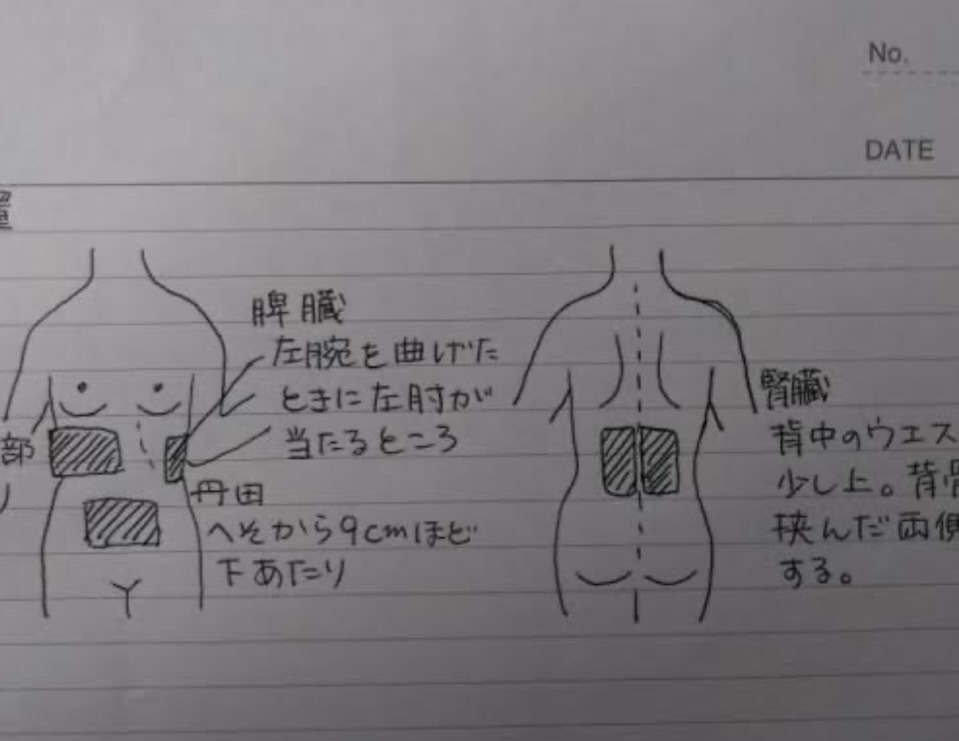 No.
DATE
置
脾臓
左腕を曲げた
ときに左肘が
当たるところ
部
丹田
へそから9cmほど
下あたり
腎臓
背中のウエス
少し上。背骨
挟んだ両側
する。